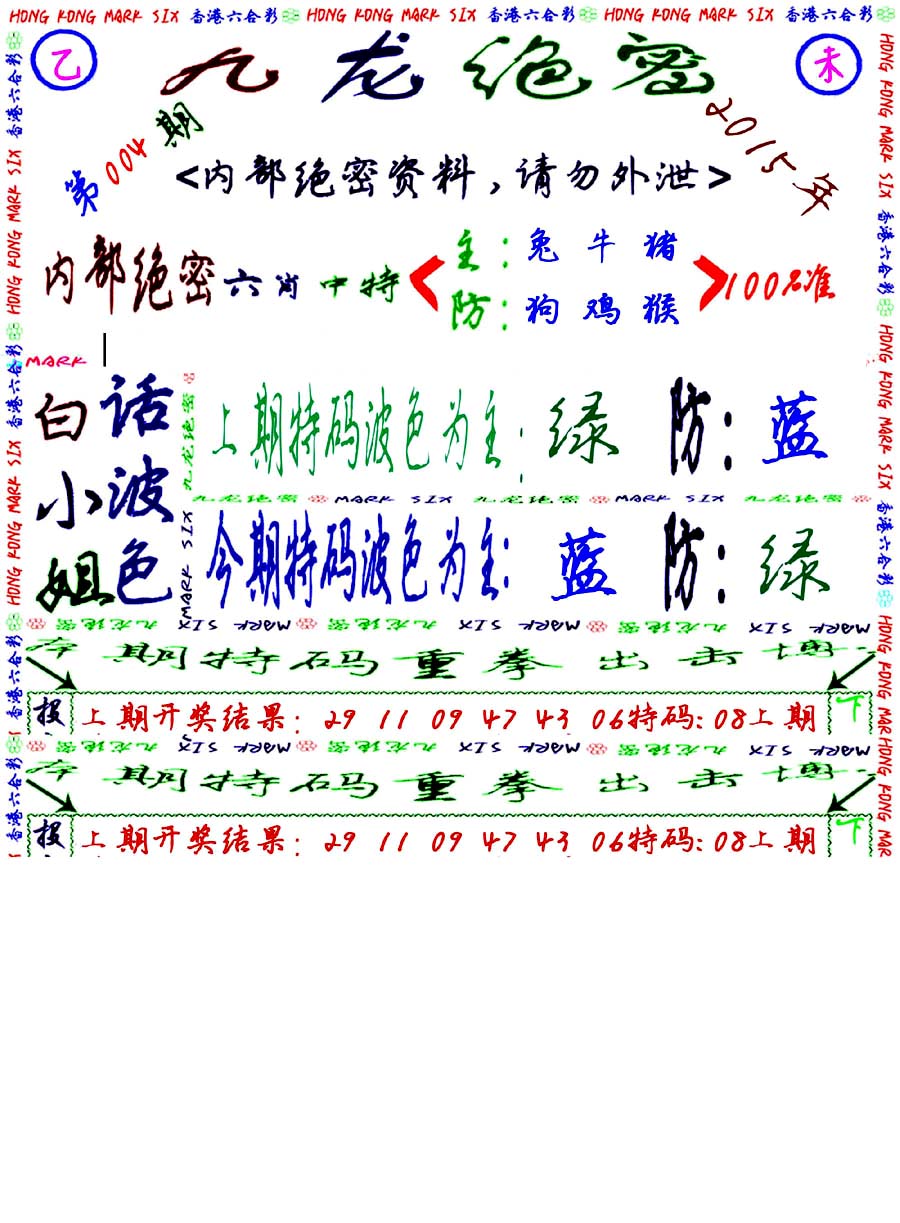 HONG KONG MARK SIX 香港六合彩 HONG KONG MARK SIX 香港六合彩 HONG KONG MARK SIX 香港六合彩
乙 九龙绝密 未
第004期 2015年
<内部绝密资料,请勿外泄>
内部绝密六肖中特 主:兔牛猪 100%准
防:狗鸡猴
MARK
白话小波姐色
上期特码波色为主:绿 防:蓝
九龙绝密 MARK SIX 九龙绝密 MARK SIX 九龙绝密
今期特码波色为主:蓝 防:绿
九龙绝密 MARK SIX
SIX 九龙绝密 MARK SIX 九龙绝密 MARK SIX 九龙绝密 SIX MARK
期特码重拳出击
投 上期开奖结果: 29 11 09 47 43 06特码:08上期 下
九龙绝密 SIX MARK 九龙绝密 SIX MARK 九龙绝密 SIX MARK
期特码重拳出击
投 上期开奖结果: 29 11 09 47 43 06特码:08上期 下
HONG KONG MARK SIX 香港六合彩 HONG KONG MARK SIX 香港六合彩
HONG KONG MARK SIX 香港六合彩 HONG KONG MARK SIX 香港六合彩 HONG KONG MAR HONG KONG MAR